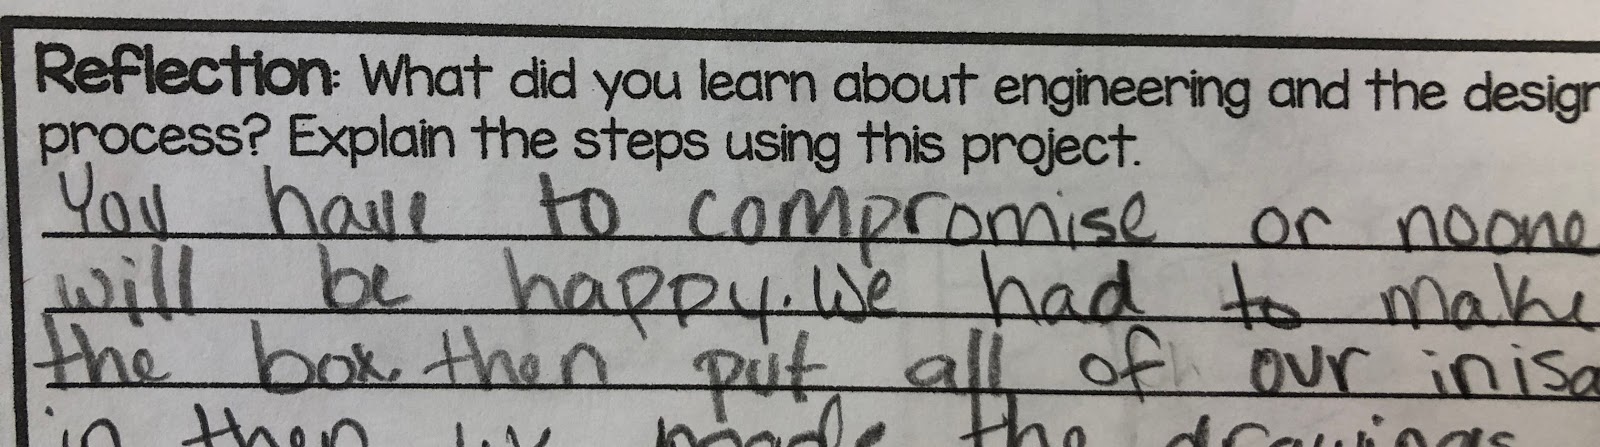 Reflection: What did you learn about engineering and the design
process? Explain the steps using this project.
You have to compromise or noone
will be happy. We had to make
the box. then put all of our inisa
in then we made the drawings